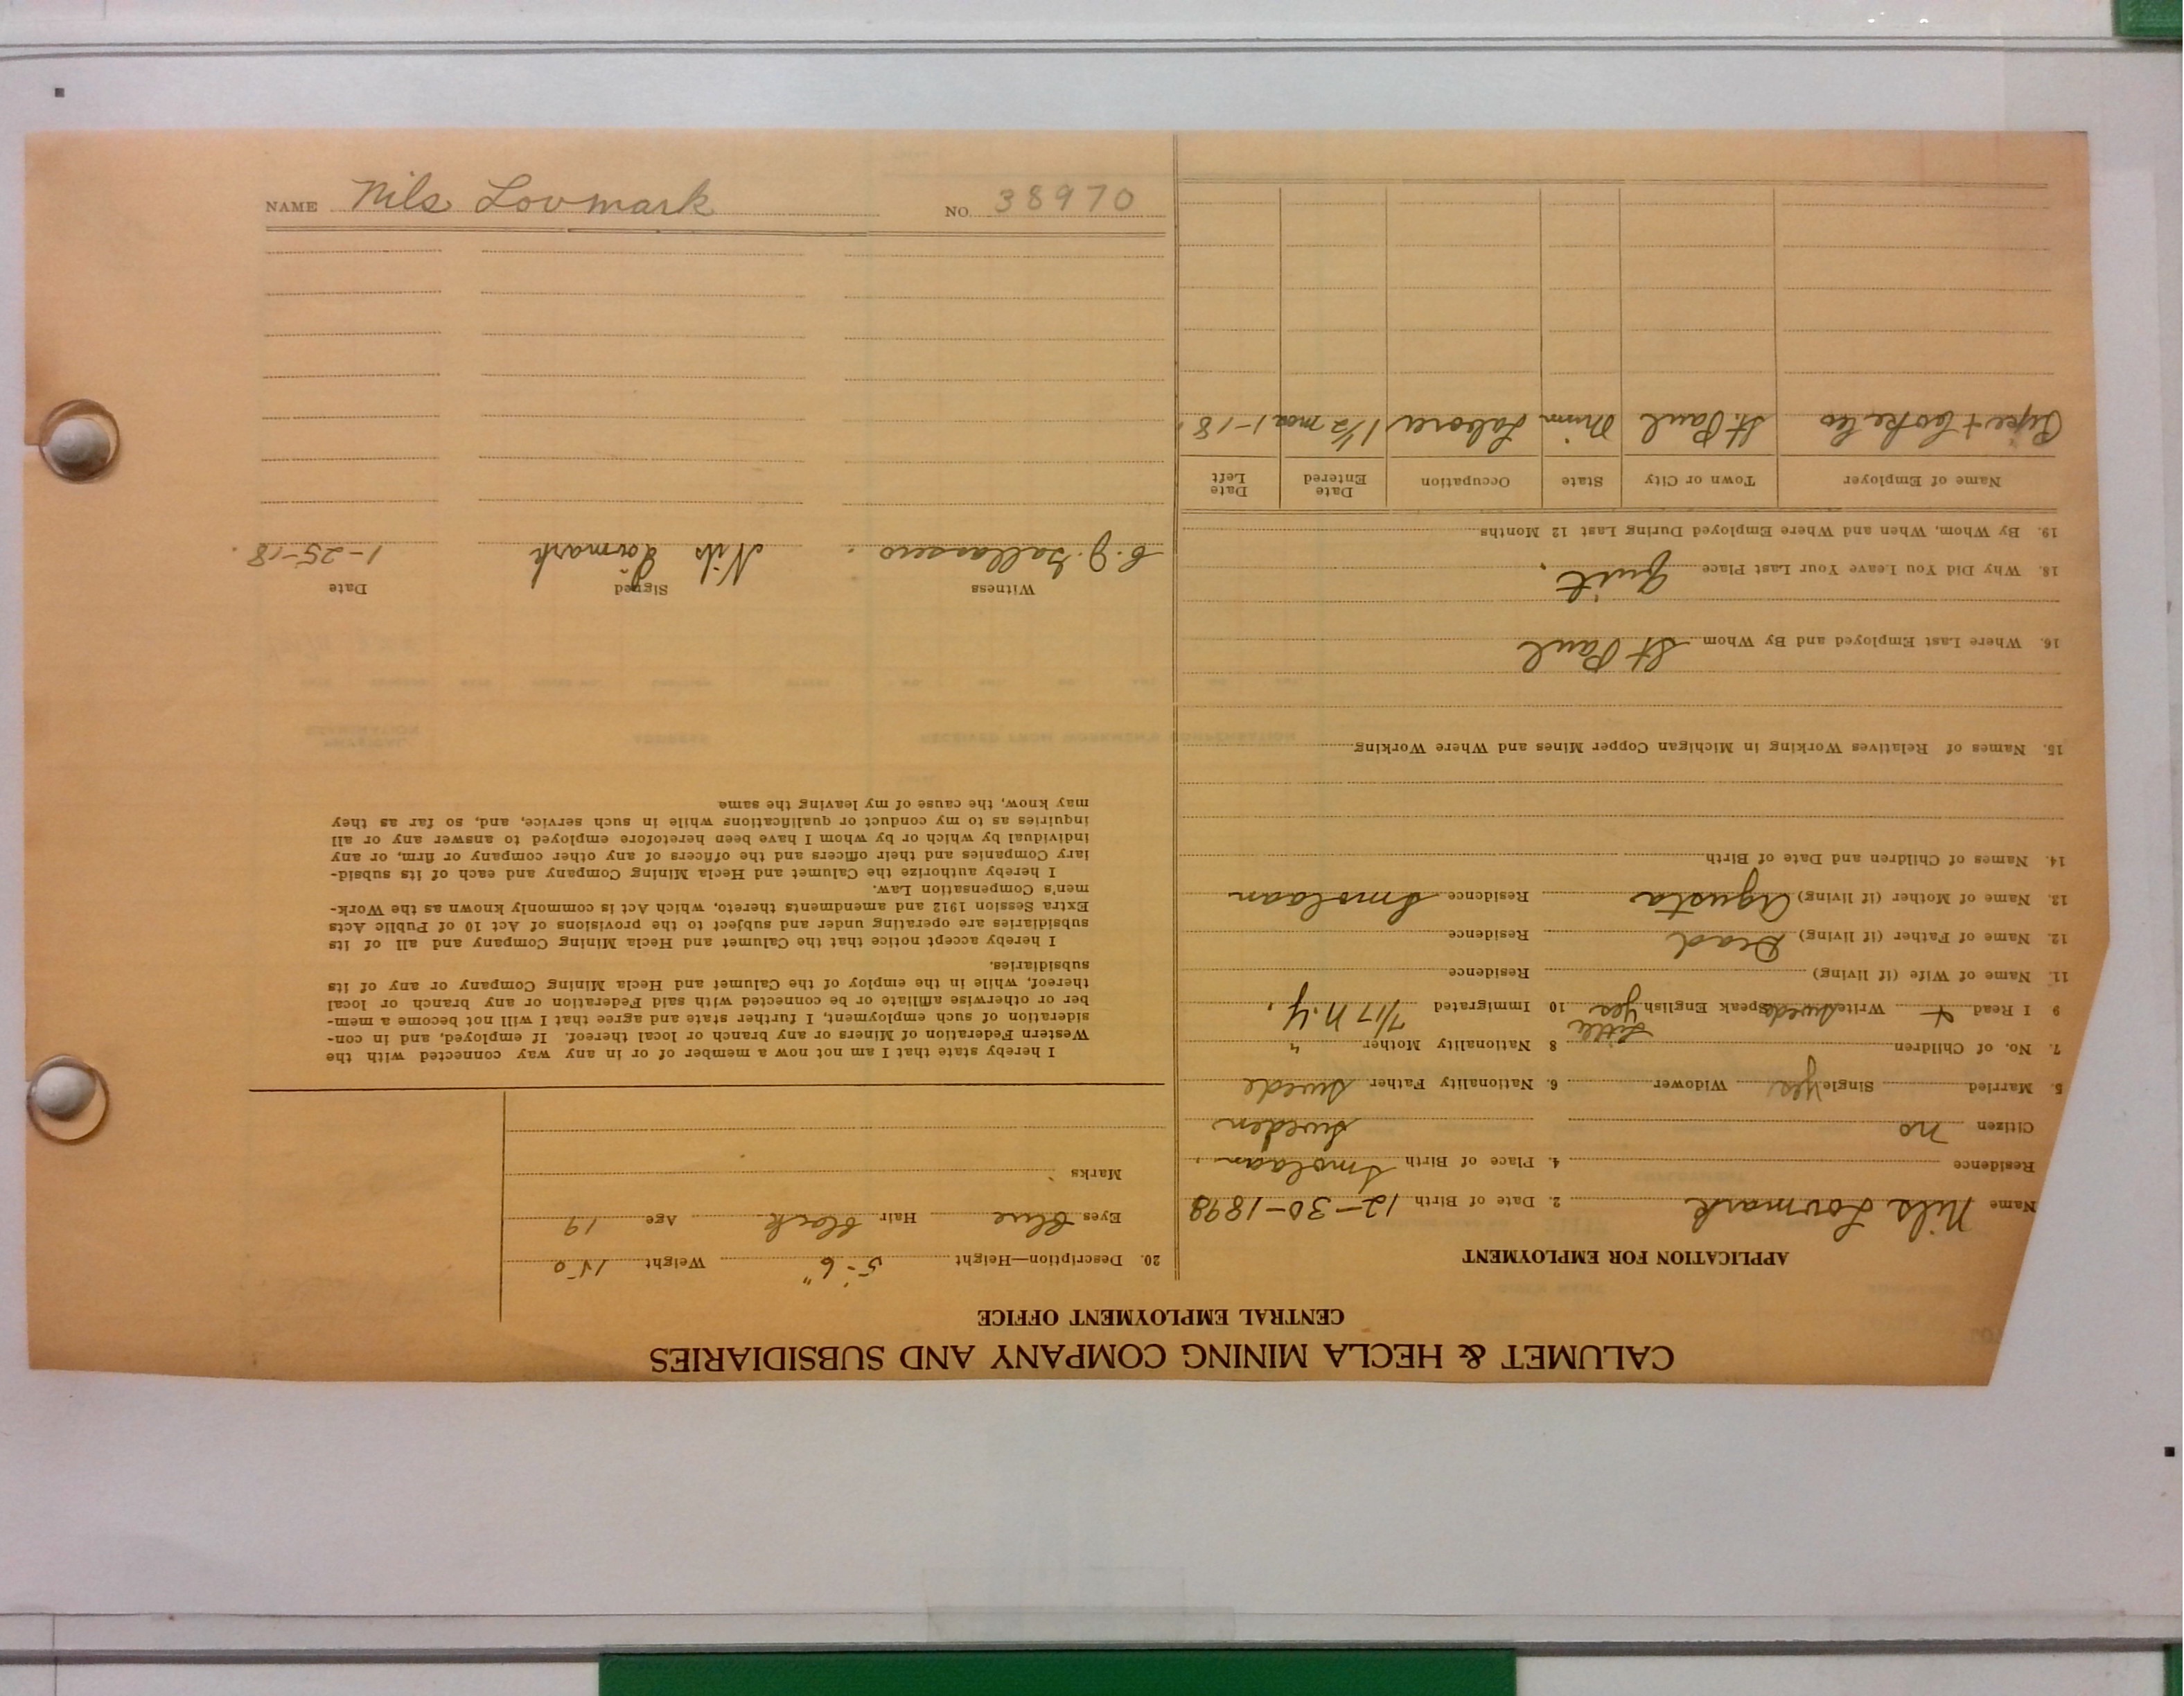 CALUMET & HECLA MINING COMPANY AND SUBSIDIARIES
CENTRAL EMPLOYMENT OFFICE
APPLICATION FOR EMPLOYMENT
Name Nils Lovmark 2. Date of Birth 12-30-1898
Residence 4. Place of Birth Smolaan
Citizen no Sweden
5. Married Single Yes Widower 6. Nationality Father Swede
7. No. of Children 8 Nationality Mother "
Little
9 I Read + Write Swede Speak English Yes 10 Immigrated 7/17 N.Y.
11. Name of Wife (if living) Residence
12. Name of Father (if living) Dead Residence
13. Name of Mother (if living) Agusta Residence Smolaan
14. Names of Children and Date of Birth
15. Names of Relatives Working in Michigan Copper Mines and Where Working
16. Where Last Employed and By Whom St Paul
18. Why Did You Leave Your Last Place Quit.
19. By Whom, When and Where Employed During Last 12 Months
Name of Employer Town or City State Occupation Date Entered Date Left
St. Paul Minn Laborer 1½ mos 1-18.
20. Description—Height 5'-6" Weight 150
Eyes Blue Hair Black Age 19
Marks
I hereby state that I am not now a member of or in any way connected with the
Western Federation of Miners or any branch or local thereof. If employed, and in con-
sideration of such employment, I further state and agree that I will not become a mem-
ber or otherwise affiliate or be connected with said Federation or any branch or local
thereof, while in the employ of the Calumet and Hecla Mining Company or any of its
subsidiaries.
I hereby accept notice that the Calumet and Hecla Mining Company and all of its
subsidiaries are operating under and subject to the provisions of Act 10 of Public Acts
Extra Session 1912 and amendments thereto, which Act is commonly known as the Work-
men's Compensation Law.
I hereby authorize the Calumet and Hecla Mining Company and each of its subsid-
iary Companies and their officers and the officers of any other company or firm, or any
individual by which or by whom I have been heretofore employed to answer any or all
inquiries as to my conduct or qualifications while in such service, and, so far as they
may know, the cause of my leaving the same
Witness Signed Date
Nils Lövmark 1-25-18.
NAME Nils Lovmark NO. 38970